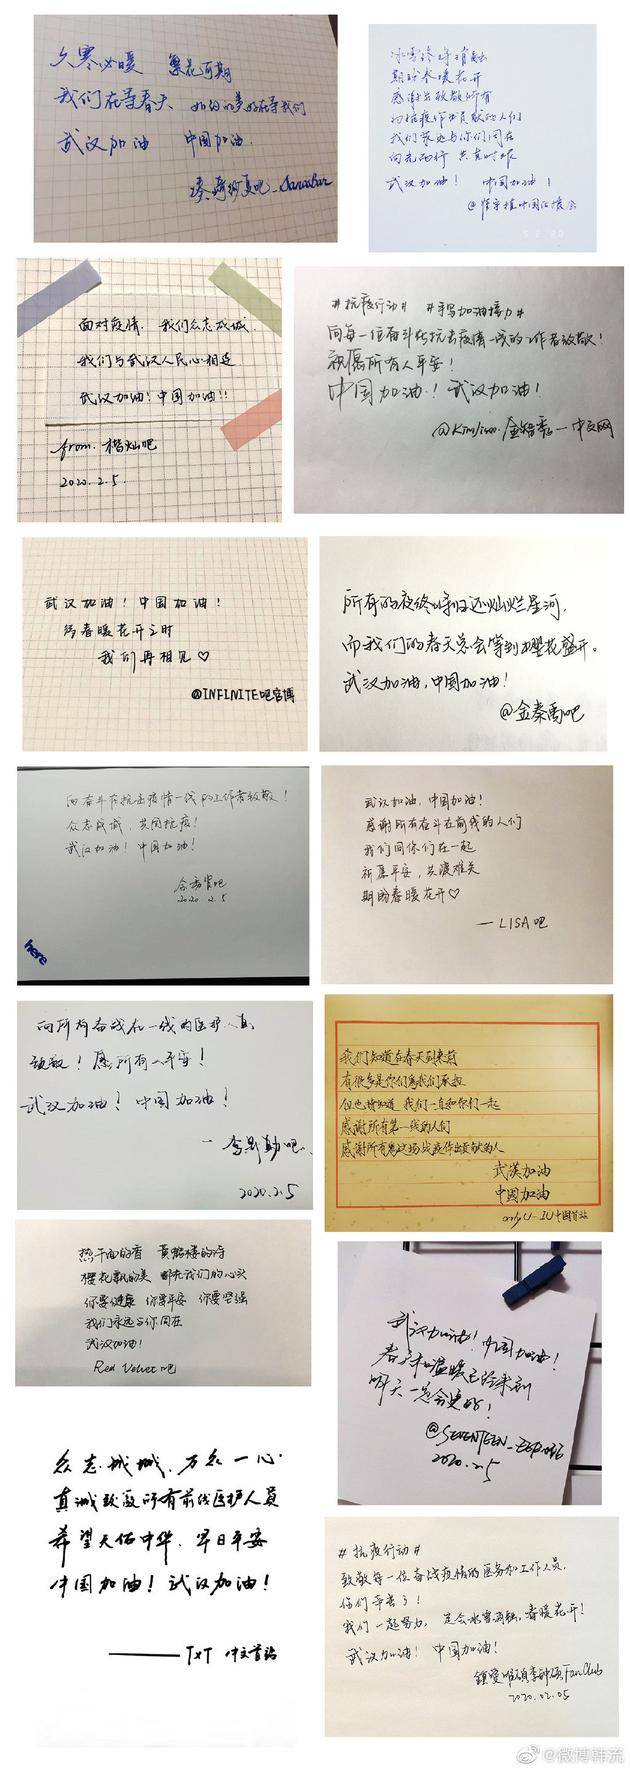 久寒必暖 繁花有期
我们在等春天 如约的美好在等我们
武汉加油 中国加油.
冰雪终将消融
期盼春暖花开
感谢 致敬所有
为抗疫作出贡献的人们
我们永远与你们同在
向光而行 共克时艰
武汉加油! 中国加油!
面对疫情. 我们众志成城.
我们与武汉人民心相连
武汉加油!中国加油!!
from. 楷灿吧
2020.2.5.
#抗疫行动# #手写加油接力#
向每一位奋斗在抗击疫情一线的工作者致敬!
祝愿所有人平安!
中国加油!武汉加油!
武汉加油!中国加油!
待春暖花开之时
我们再相见♡
@INFINITE吧官博
所有的夜终将归还灿烂星河,
而我们的春天总会等到樱花盛开。
武汉加油,中国加油!
@金泰禹吧
向奋斗在抗击疫情一线的工作者致敬!
众志成城,共同抗疫!
武汉加油!中国加油!
2020.2.5
here
武汉加油,中国加油!
感谢所有奋斗在前线的人们
我们同你们在一起
祈愿平安,共渡难关
期盼春暖花开♡
—LISA吧
向所有奋战在一线的医护人员
致敬!愿所有人平安!
武汉加油!中国加油!
2020.2.5
我们知道在春天到来前
有很多是你们为我们承担
但也请知道 我们一直和你们一起
感谢所有第一线的人们
感谢所有为这场战疫作出贡献的人
武漢加油
中國加油
only U-IU中国首站
热干面的香 黄鹤楼的诗
樱花飘的美 都在我们的心头
你要健康 你要平安 你要坚强
我们永远与你同在
武汉加油!
Red Velvet吧
武汉加油!中国加油!
春天和温暖已经来到
明天一定会更好!
2020.2.5
众志成城,万众一心
真诚致敬所有前线医护人员
希望天佑中华,早日平安
中国加油!武汉加油!
——TXT 中文首站
#抗疫行动#
致敬每一位奋战疫情的医务和工作人员,
你们辛苦了!
我们一起努力,定会冰雪消融,春暖花开!
武汉加油!中国加油!
2020.02.05
@微博韩流